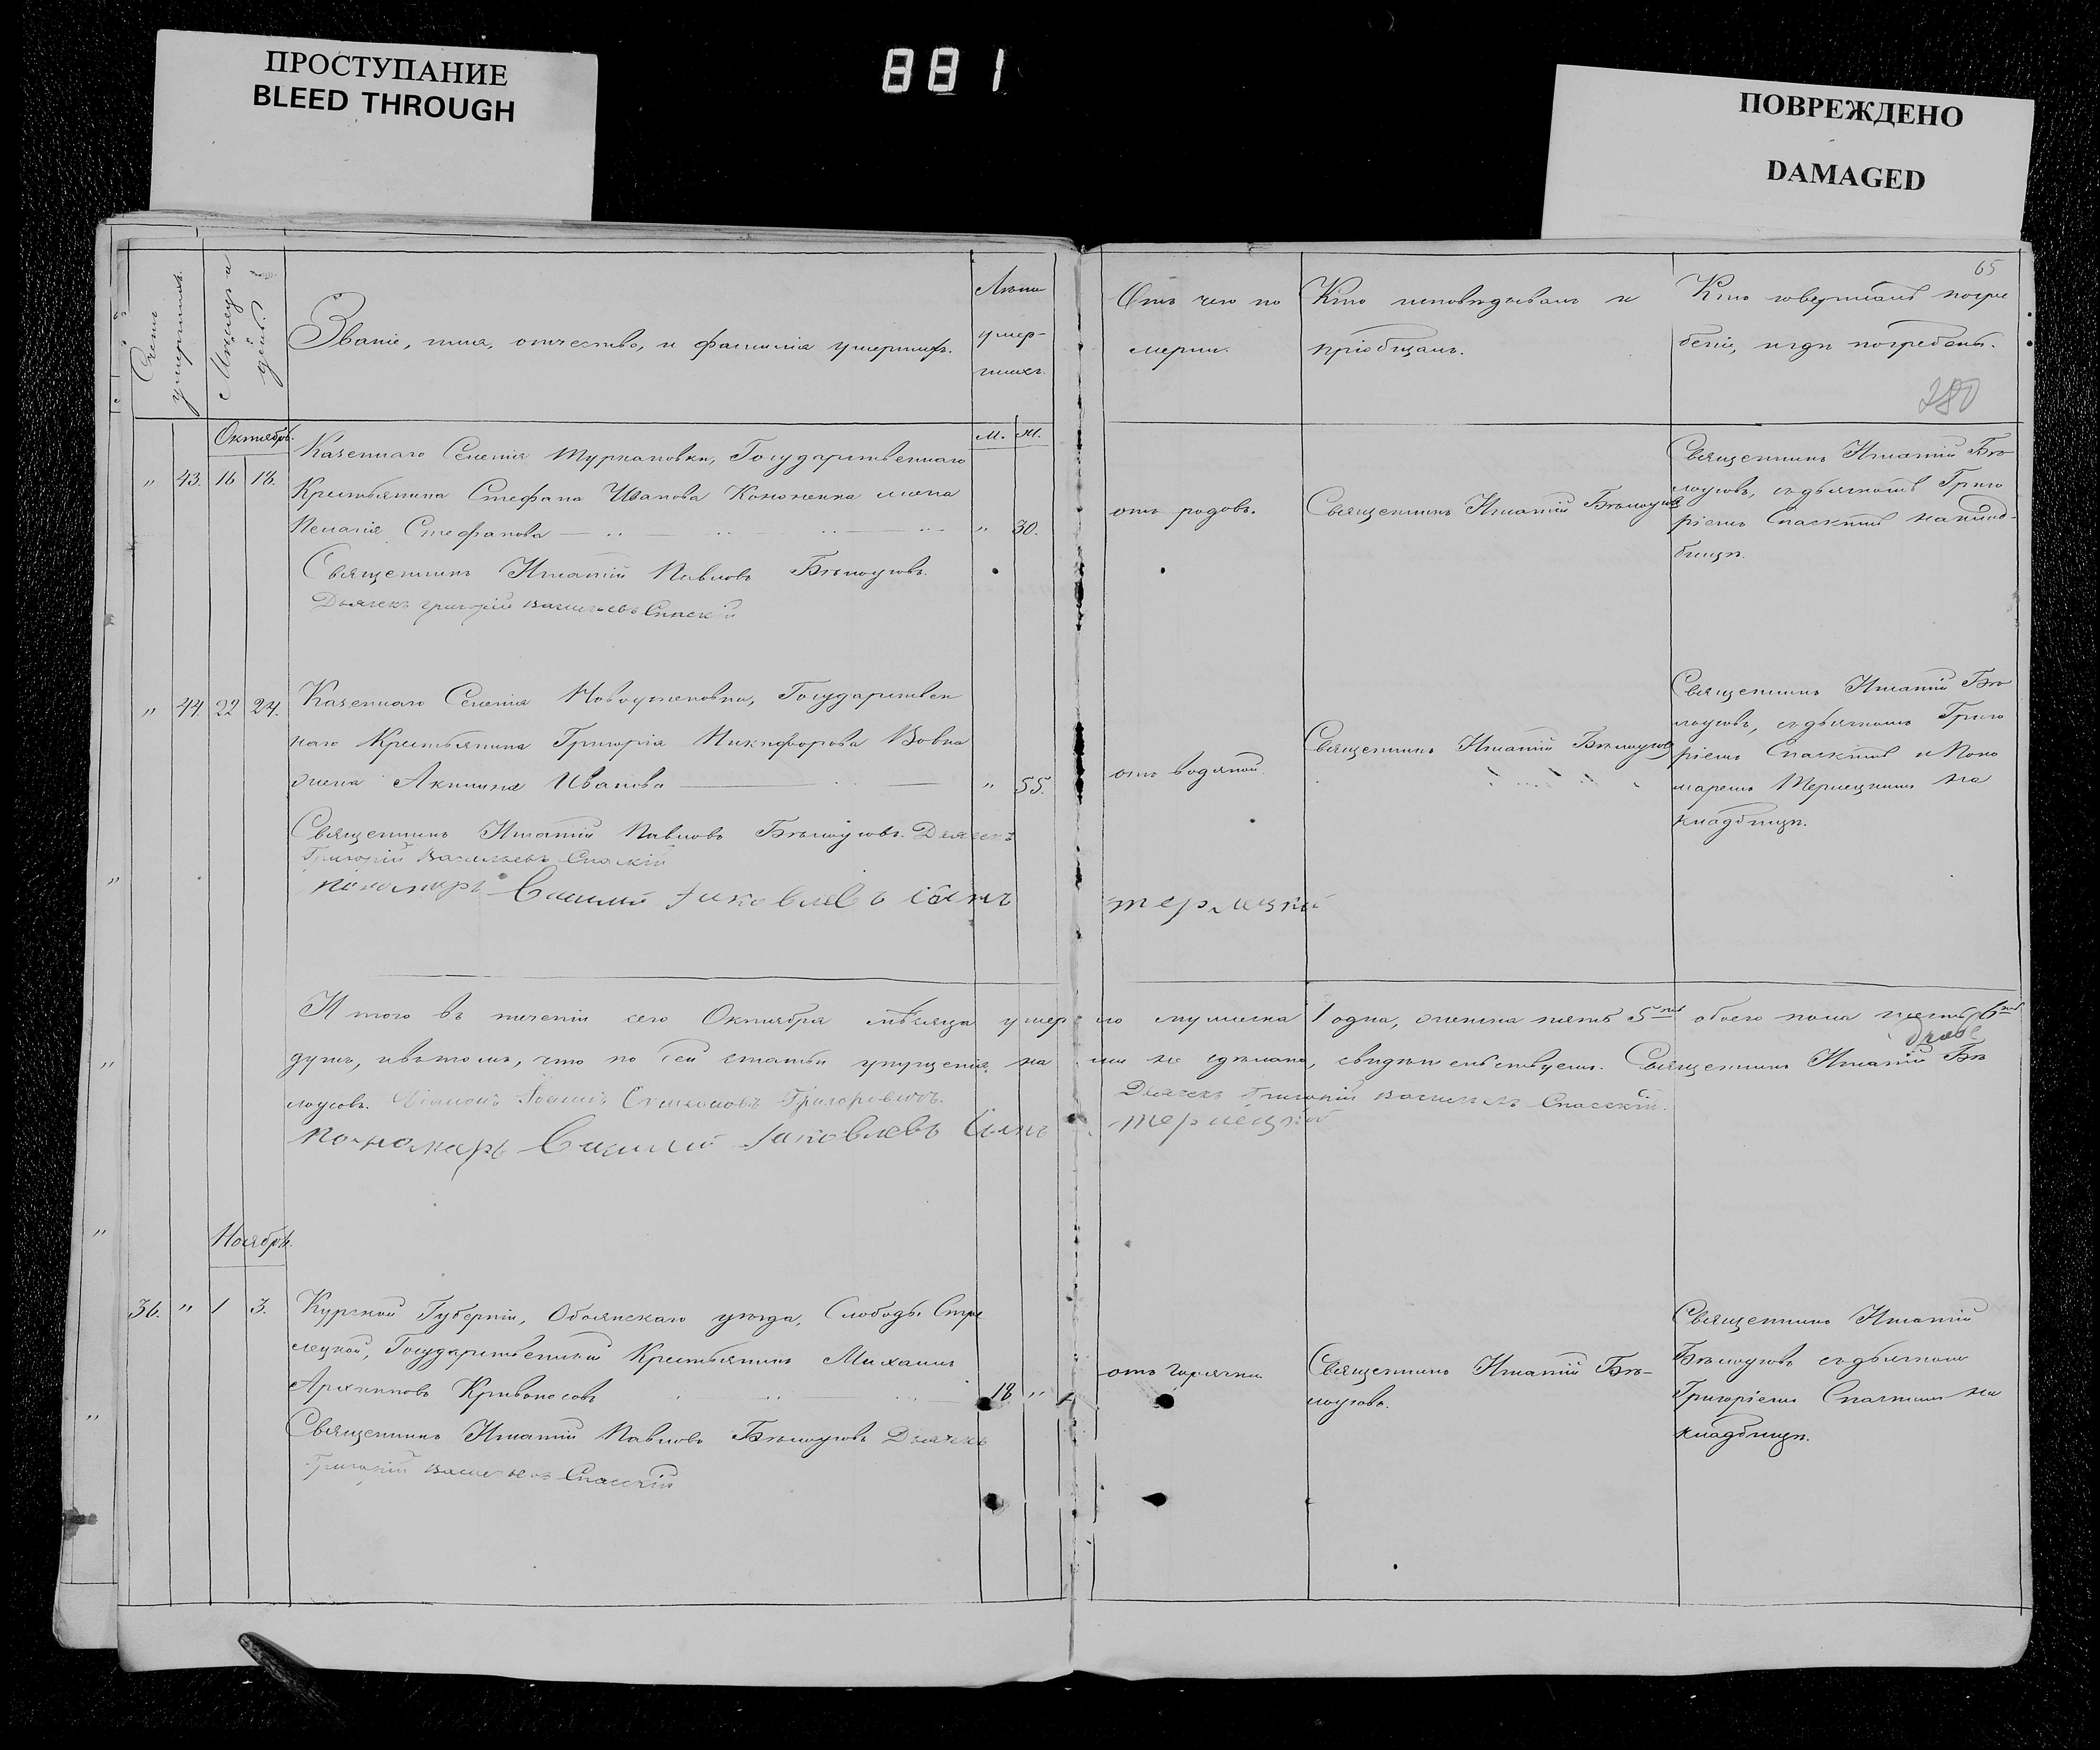 ПРОСТУПАНИЕ
BLEED THROUGH
881
ПОВРЕЖДЕНО
DAMAGED
65
Счетъ умершихъ.
Мѣсяцъ и день.
Званіе, имя, отчество, и фамилія умершихъ.
Лѣта
умер-
шихъ.
М. Ж.
Отъ чего по
мерли.
Кто исповѣдывалъ и
пріобщалъ.
Кто совершалъ погре
беніе, и гдѣ погребены.
280
Октябрь.
" 43. 16 18.
Казеннаго Селенія Туркановки, Государственнаго
Крестьянина Стефана Иванова Кононенка жена
Пелагія Стефанова " 30.
Священникъ Игнатій Павловъ Бѣлоусовъ.
Дьячекъ Григорій Васильевъ Спаскій
отъ родовъ.
Священникъ Игнатій Бѣлоусовъ
Священникъ Игнатій Бѣ-
лоусовъ, съ дьячкомъ Григо
ріемъ Спаскимъ на клад-
бищѣ.
" 44. 22 24.
Казеннаго Селенія Государствен
наго Крестьянина Григорія Никифорова Вовка
жена Акилина Иванова " 55.
Священникъ Игнатій Павловъ Бѣлоусовъ. Дьячекъ
Григорій Васильевъ Спаскій
Пономарь Василій Яковлевъ сынъ Терлецкій
отъ водяной.
Священникъ Игнатій Бѣлоусовъ
Священникъ Игнатій Бѣ
лоусовъ, съ дьячкомъ Григо
ріемъ Спаскимъ и Поно
маремъ Терлецкимъ на
кладбищѣ.
Итого въ теченіи сего Октября мѣсяца умерло мужеска 1 одна, женска пять 5ть обоего пола шесть 6ть
душъ, и въ томъ, что по сей статьи упущенія не сдѣлано, свидѣтельствуемъ. Священникъ Игнатій Бѣ
лоусовъ.
Дьячекъ Григорій Васильевъ Спасскій.
Пономарь Василій Яковлевъ сынъ Терлецкій
Ноябрь.
36. " 1 3.
Курской Губерніи, Обоянскаго уѣзда, Слободы Стре
лецкой, Государственный Крестьянинъ Михаилъ
Архиповъ Кривоносовъ 18 "
Священникъ Игнатій Павловъ Бѣлоусовъ Дьячекъ
Григорій Васильевъ Спасскій
отъ горячки.
Священникъ Игнатій Бѣ-
лоусовъ.
Священникъ Игнатій
Бѣлоусовъ съ дьячкомъ
Григоріемъ Спаскимъ на
кладбищѣ.